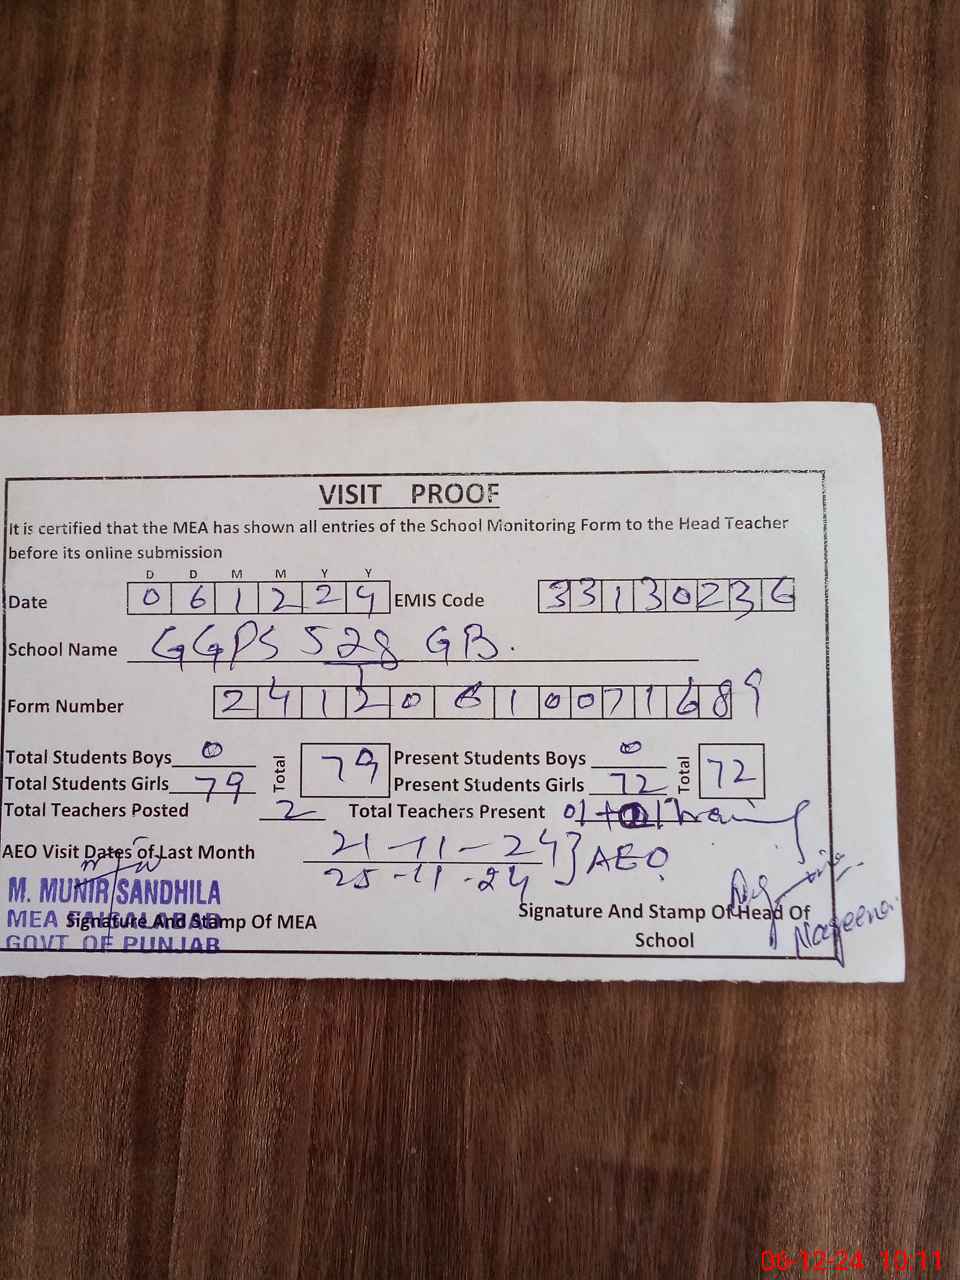 VISIT PROOF
It is certified that the MEA has shown all entries of the School Monitoring Form to the Head Teacher
before its online submission
D D M M Y Y
Date 0 6 1 2 2 4 EMIS Code 3 3 1 3 0 2 3 6
School Name GGPS 528 GB.
Form Number 2 4 1 2 0 6 1 0 0 7 1 6 8 9
Total Students Boys 0 Total 79 Present Students Boys 0 Total 72
Total Students Girls 79 Present Students Girls 72
Total Teachers Posted 2 Total Teachers Present 01+01 Training
AEO Visit Dates of Last Month 21-11-24 } AEO
25-11-24
M. MUNIR SANDHILA
MEA
GOVT OF PUNJAB
Signature And Stamp Of MEA
Signature And Stamp Of Head Of
School
Nageena
06-12-24 10:11